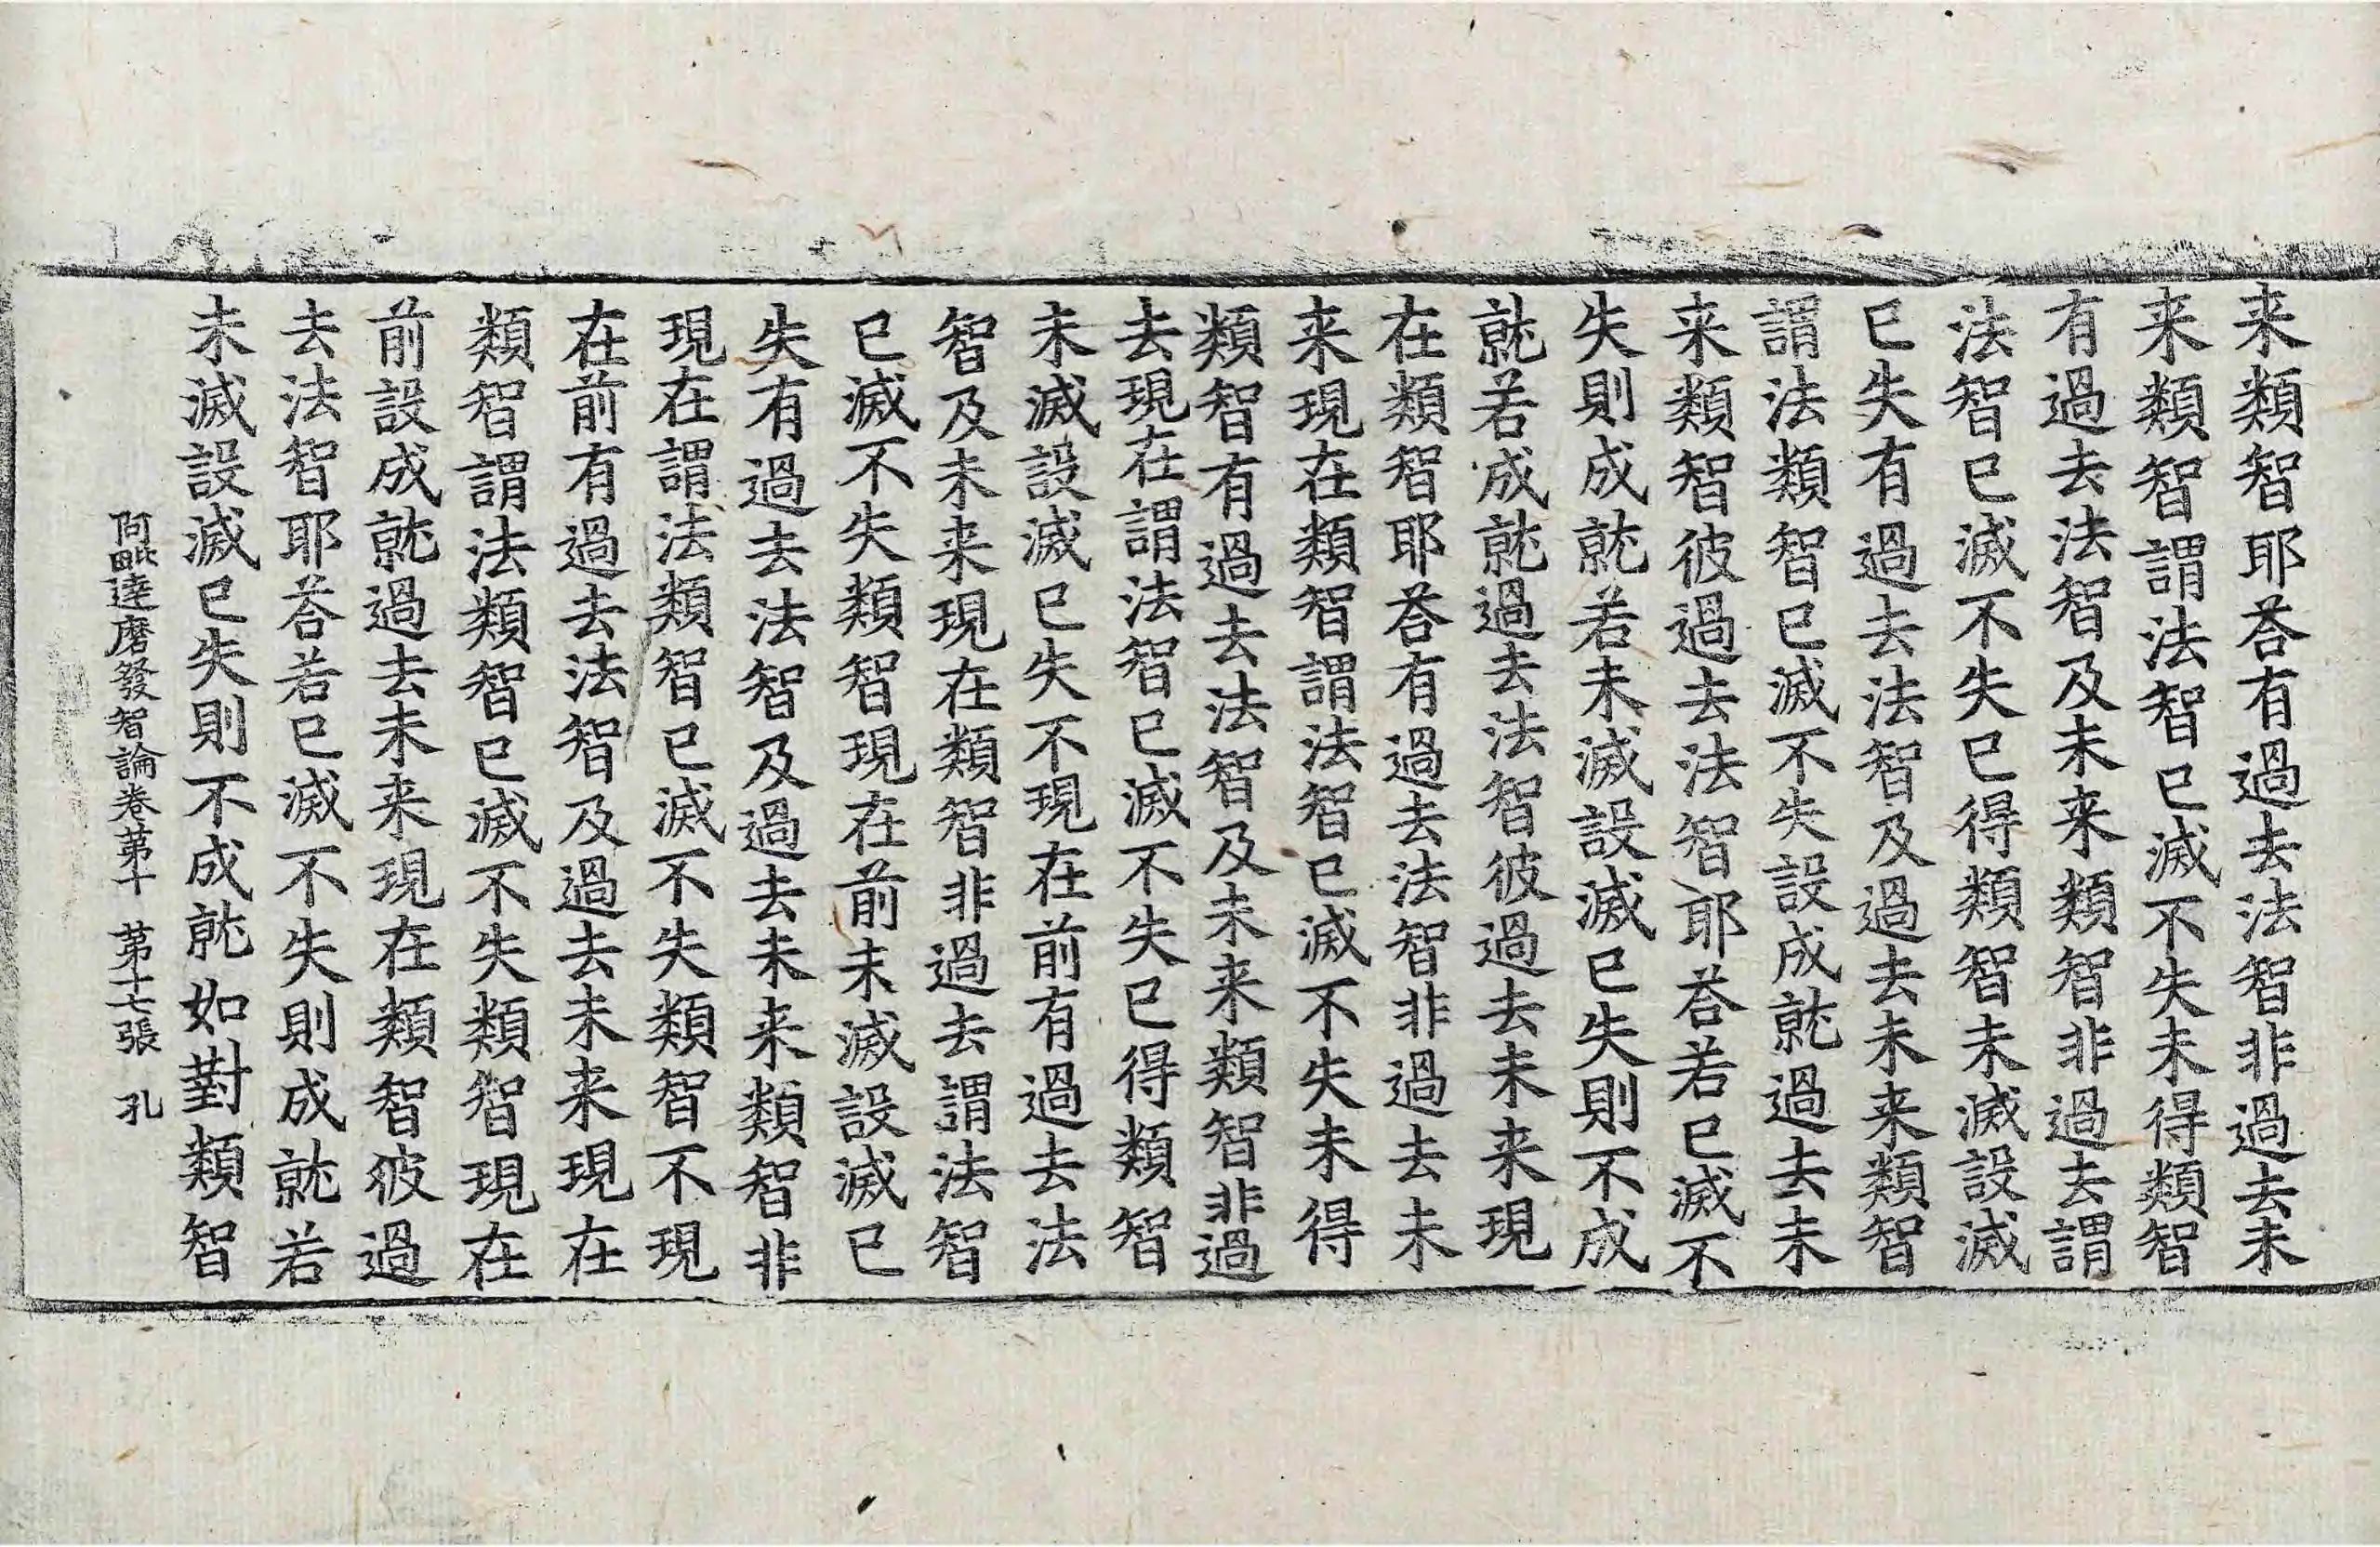 来類智耶荅有過去法智非過去未
来類智謂法智已滅不失未得類智
有過去法智及未来類智非過去謂
法智已滅不失已得類智未滅設滅
已失有過去法智及過去未来類智
謂法類智已滅不失設成就過去未
来類智彼過去法智耶荅若已滅不
失則成就若未滅設滅已失則不成
就若成就過去法智彼過去未来現
在類智耶荅有過去法智非過去未
来現在類智謂法智已滅不失未得
類智有過去法智及未来類智非過
去現在謂法智已滅不失已得類智
未滅設滅已失不現在前有過去法
智及未来現在類智非過去謂法智
已滅不失類智現在前未滅設滅已
失有過去法智及過去未来類智非
現在謂法類智已滅不失類智不現
在前有過去法智及過去未来現在
類智謂法類智已滅不失類智現在
前設成就過去未来現在類智彼過
去法智耶荅若已滅不失則成就若
未滅設滅已失則不成就如對類智
阿毗達磨發智論卷第十 第十七張 孔